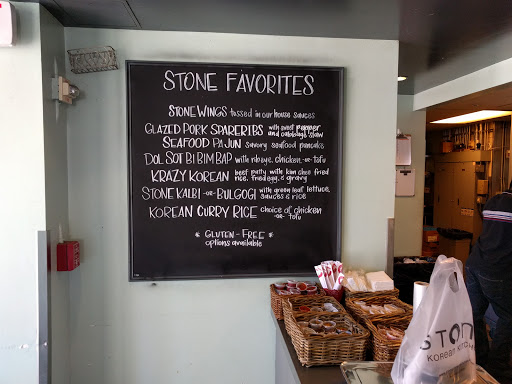 STONE FAVORITES
STONE WINGS tossed in our house sauces
GLAZED PORK SPARERIBS with sweet pepper and cabbage slaw
SEAFOOD PAJUN savory seafood pancake
DOL SOT BI BIM BAP with ribeye, chicken -or- tofu
KRAZY KOREAN beef patty with kim chee fried rice, fried egg, & gravy
STONE KALBI -or- BULGOGI with green leaf lettuce, sauces & rice
KOREAN CURRY RICE choice of chicken -or- tofu
* GLUTEN-FREE *
options available
STON
KOREAN KITCH